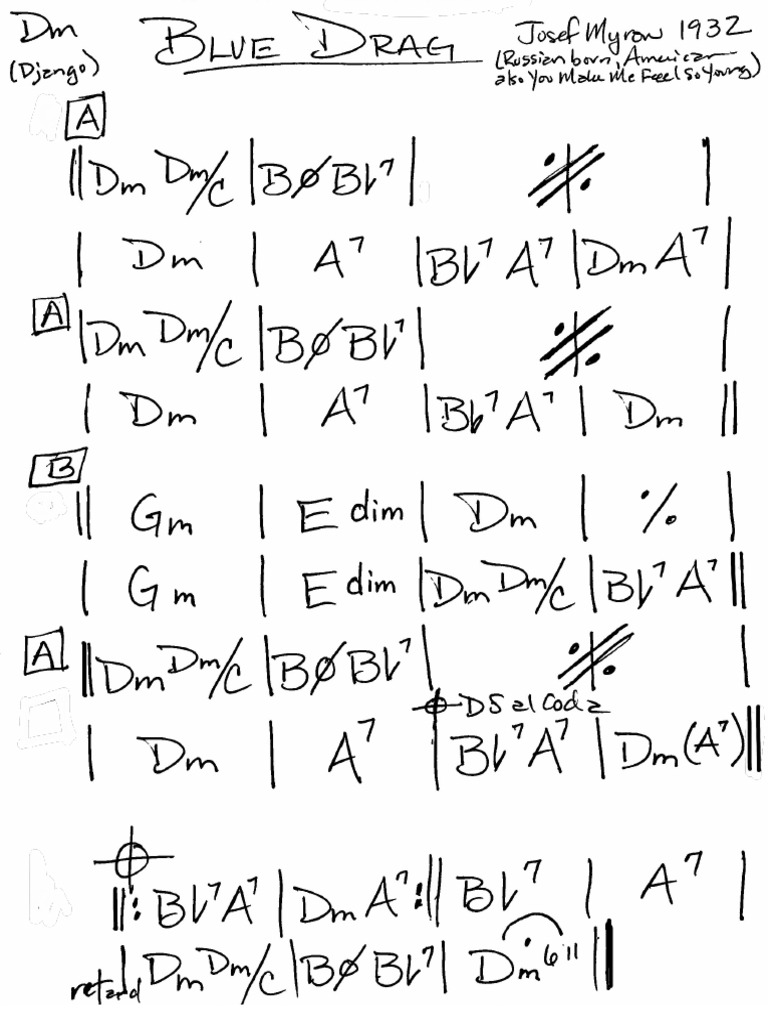 Dm BLUE DRAG Josef Myrow 1932
(Django) (Russian born, American
also You Make Me Feel So Young)
A
‖ Dm Dm/C | Bø B♭7 | 𝄎 |
| Dm | A7 | B♭7 A7 | Dm A7 |
A | Dm Dm/C | Bø B♭7 | 𝄎 |
| Dm | A7 | B♭7 A7 | Dm ‖
B
‖ Gm | E dim | Dm | ٪ |
| Gm | E dim | Dm Dm/C | B♭7 A7 ‖
A ‖ Dm Dm/C | Bø B♭7 | 𝄎 |
𝄌 DS al Coda
| Dm | A7 | B♭7 A7 | Dm (A7) ‖
𝄌
‖: B♭7 A7 | Dm A7 :‖ B♭7 | A7 |
retard | Dm Dm/C | Bø B♭7 | Dm 𝄐 ‖